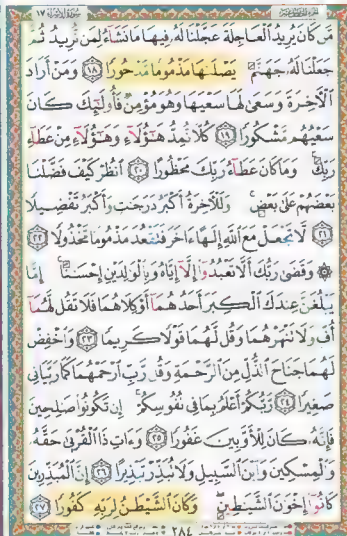 سورة الإسراء ١٧
مَّن كَانَ يُرِيدُ ٱلْعَاجِلَةَ عَجَّلْنَا لَهُۥ فِيهَا مَا نَشَآءُ لِمَن نُّرِيدُ ثُمَّ
جَعَلْنَا لَهُۥ جَهَنَّمَ يَصْلَىٰهَا مَذْمُومًا مَّدْحُورًا ١٨ وَمَنْ أَرَادَ
ٱلْأَخِرَةَ وَسَعَىٰ لَهَا سَعْيَهَا وَهُوَ مُؤْمِنٌ فَأُو۟لَٰٓئِكَ كَانَ
سَعْيُهُم مَّشْكُورًا ١٩ كُلًّا نُّمِدُّ هَٰٓؤُلَآءِ وَهَٰٓؤُلَآءِ مِنْ عَطَآءِ
رَبِّكَ وَمَا كَانَ عَطَآءُ رَبِّكَ مَحْظُورًا ٢٠ ٱنظُرْ كَيْفَ فَضَّلْنَا
بَعْضَهُمْ عَلَىٰ بَعْضٍ وَلَلْأَخِرَةُ أَكْبَرُ دَرَجَٰتٍ وَأَكْبَرُ تَفْضِيلًا
٢١ لَّا تَجْعَلْ مَعَ ٱللَّهِ إِلَٰهًا ءَاخَرَ فَتَقْعُدَ مَذْمُومًا مَّخْذُولًا ٢٢
۞ وَقَضَىٰ رَبُّكَ أَلَّا تَعْبُدُوٓا۟ إِلَّآ إِيَّاهُ وَبِٱلْوَٰلِدَيْنِ إِحْسَٰنًا إِمَّا
يَبْلُغَنَّ عِندَكَ ٱلْكِبَرَ أَحَدُهُمَآ أَوْ كِلَاهُمَا فَلَا تَقُل لَّهُمَآ
أُفٍّ وَلَا تَنْهَرْهُمَا وَقُل لَّهُمَا قَوْلًا كَرِيمًا ٢٣ وَٱخْفِضْ
لَهُمَا جَنَاحَ ٱلذُّلِّ مِنَ ٱلرَّحْمَةِ وَقُل رَّبِّ ٱرْحَمْهُمَا كَمَا رَبَّيَانِى
صَغِيرًا ٢٤ رَّبُّكُمْ أَعْلَمُ بِمَا فِى نُفُوسِكُمْ إِن تَكُونُوا۟ صَٰلِحِينَ
فَإِنَّهُۥ كَانَ لِلْأَوَّٰبِينَ غَفُورًا ٢٥ وَءَاتِ ذَا ٱلْقُرْبَىٰ حَقَّهُۥ
وَٱلْمِسْكِينَ وَٱبْنَ ٱلسَّبِيلِ وَلَا تُبَذِّرْ تَبْذِيرًا ٢٦ إِنَّ ٱلْمُبَذِّرِينَ
كَانُوٓا۟ إِخْوَٰنَ ٱلشَّيَٰطِينِ وَكَانَ ٱلشَّيْطَٰنُ لِرَبِّهِۦ كَفُورًا ٢٧
٢٨٤